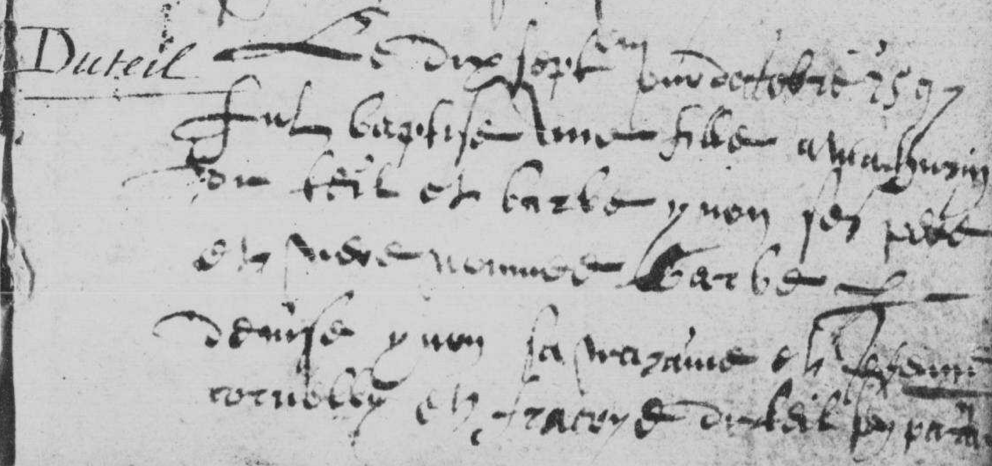 Duteil
Le dix sept em jour doctobre 1597
fut baptise une fille a mathurin
du teil et barbe yvon ses pere
et mere nommee barbe
denise yvon sa maraine et estienne
cornelly et francoys duteil ses para